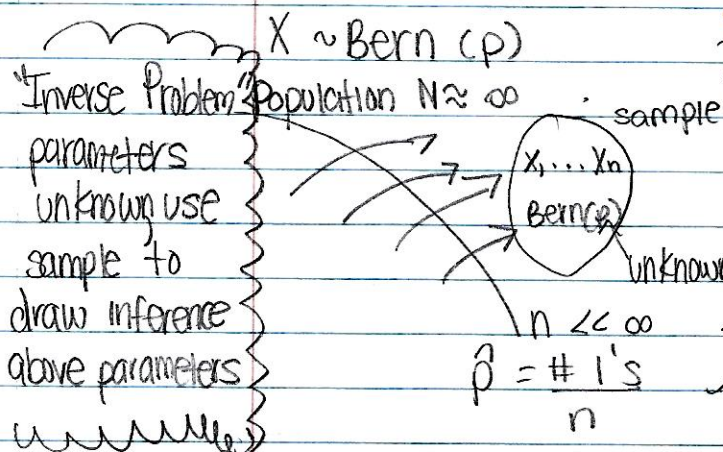 X ~ Bern (p)
"Inverse Problem"
parameters
unknown, use
sample to
draw inference
above parameters
Population N ≈ ∞
sample
X, ... Xn
Bern(p)
unknown
n << ∞
p̂ = # 1's
n